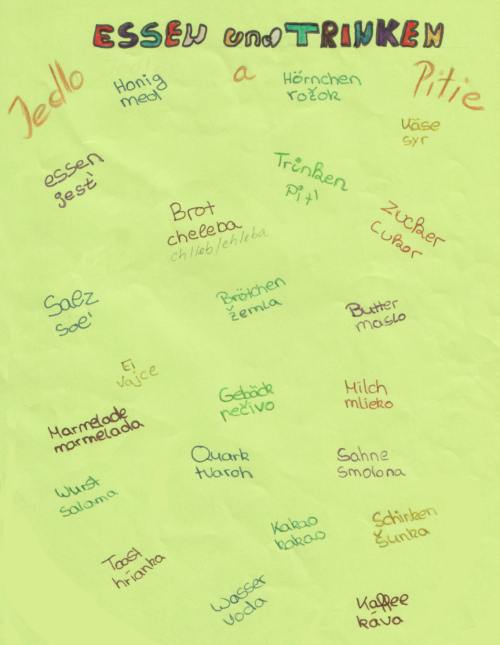 ESSEN und TRINKEN
Jedlo
a
Pitie
Honig
med
Hörnchen
rožok
Käse
syr
essen
jesť
Trinken
piť
Brot
cheleba
chlieb/chleba
Zucker
cukor
Salz
soľ
Brötchen
žemla
Butter
maslo
Ei
vajce
Gebäck
pečivo
Milch
mlieko
Marmelade
marmelada
Quark
tvaroh
Sahne
smolona
Wurst
salama
Kakao
kakao
Schinken
šunka
Toast
hrianka
Wasser
voda
Kaffee
káva